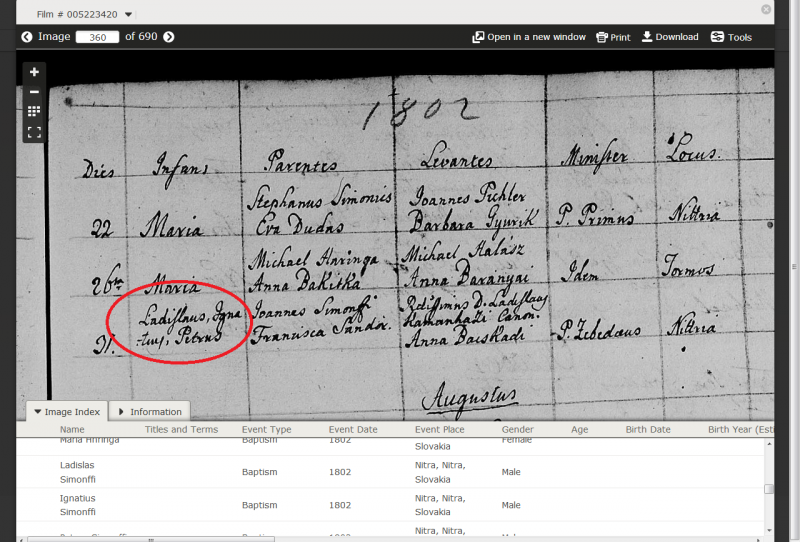 Film # 005223420
Image 360 of 690
Open in a new window Print Download Tools
1802
Dies Infans Parentes Levantes Minister Locus.
Stephanus Simonics Joannes Pichler
22 Maria Eva Dudas Barbara Gyurik P. Primus Nittria
Michael Haringa Michael Halasz
26 Maria Anna Bakitka Anna Baranyai Idem Tormos
Ladislaus, Igna Joannes Simonffi Ladislaus
-tius, Petrus Francisca Sandor. Canon.
31. Anna P. Zebedaeus Nittria
Augustus
Image Index Information
Name Titles and Terms Event Type Event Date Event Place Gender Age Birth Date Birth Year (Esti
Maria Hringa Baptism 1802 Slovakia Female
Ladislas Simonffi Baptism 1802 Nitra, Nitra, Slovakia Male
Ignatius Simonffi Baptism 1802 Nitra, Nitra, Slovakia Male
Nitra, Nitra,